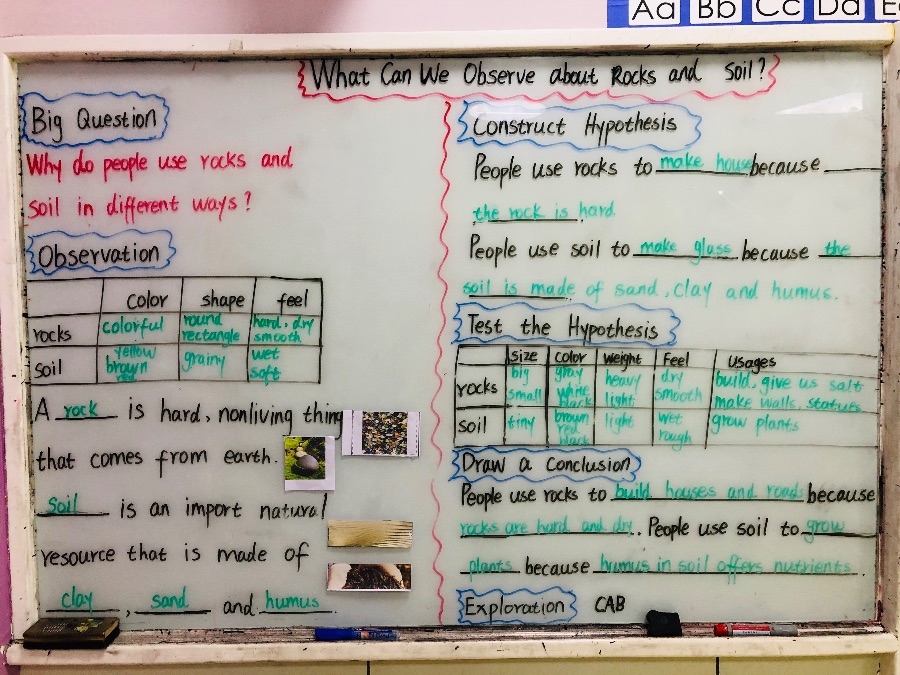 Aa Bb Cc Dd E
What Can We Observe about Rocks and Soil?
Big Question
Why do people use rocks and
soil in different ways?
Observation
color shape feel
rocks colorful round rectangle hard, dry smooth
soil yellow brown red grainy wet soft
A rock is hard, nonliving thing
that comes from earth.
Soil is an import natural
resource that is made of
clay, sand and humus.
Construct Hypothesis
People use rocks to make house because
the rock is hard.
People use soil to make glass because the
soil is made of sand, clay and humus.
Test the Hypothesis
size color weight Feel Usages
rocks big small gray white black heavy light dry smooth build, give us salt make walls, statues
soil tiny brown red black light wet rough grow plants
Draw a Conclusion
People use rocks to build houses and roads because
rocks are hard and dry. People use soil to grow
plants because humus in soil offers nutrients.
Exploration CAB